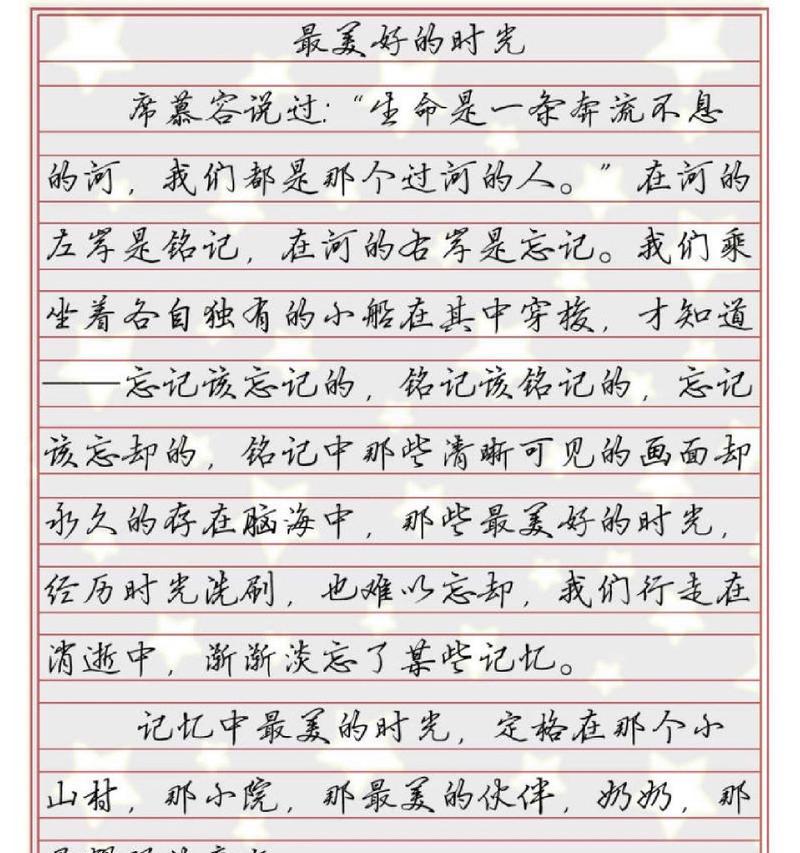 最美好的时光
席慕容说过:“生命是一条奔流不息
的河，我们都是那个过河的人。”在河的
左岸是铭记，在河的右岸是忘记。我们乘
坐着各自独有的小船在其中穿梭，才知道
——忘记该忘记的，铭记该铭记的，忘记
该忘却的，铭记中那些清晰可见的画面却
永久的存在脑海中，那些最美好的时光，
经历时光洗刷，也难以忘却，我们行走在
消逝中，渐渐淡忘了某些记忆。
记忆中最美的时光，定格在那个小
山村，那小院，那最美的伙伴，奶奶，那